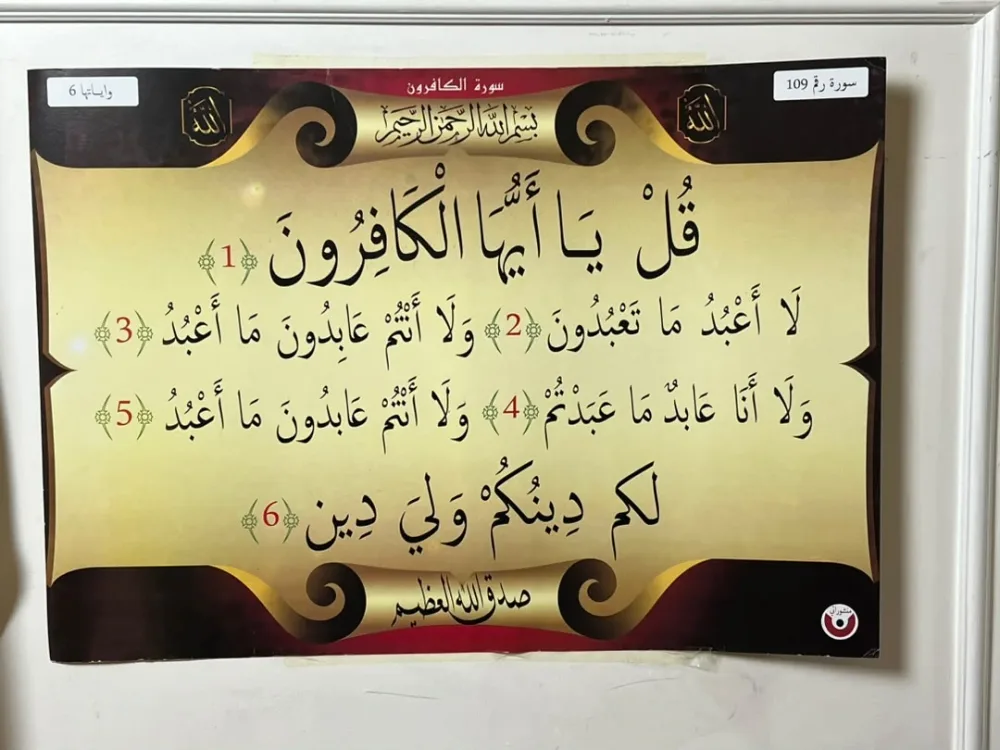 سورة رقم 109
سورة الكافرون
واياتها 6
الله
الله
بسم الله الرحمن الرحيم
قُلْ يَا أَيُّهَا الْكَافِرُونَ ﴿1﴾
لَا أَعْبُدُ مَا تَعْبُدُونَ ﴿2﴾ وَلَا أَنْتُمْ عَابِدُونَ مَا أَعْبُدُ ﴿3﴾
وَلَا أَنَا عَابدٌ مَا عَبَدْتُمْ ﴿4﴾ وَلَا أَنْتُمْ عَابدُونَ مَا أَعْبُدُ ﴿5﴾
لَكم دِينُكُمْ وَليَ دِين ﴿6﴾
صدق الله العظيم